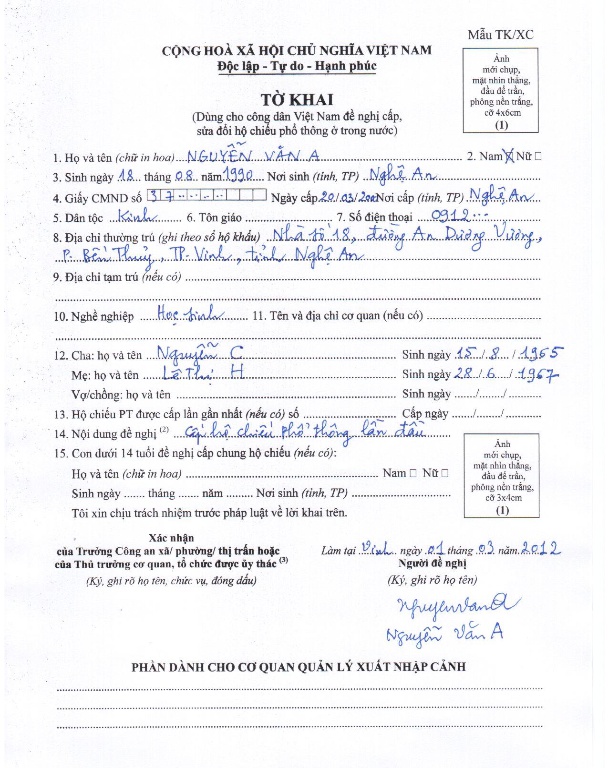 Mẫu TK/XC
CỘNG HOÀ XÃ HỘI CHỦ NGHĨA VIỆT NAM
Độc lập - Tự do - Hạnh phúc
Ảnh
mới chụp,
mặt nhìn thẳng,
đầu để trần,
phông nền trắng,
cỡ 4x6cm
(1)
TỜ KHAI
(Dùng cho công dân Việt Nam đề nghị cấp,
sửa đổi hộ chiếu phổ thông ở trong nước)
1. Họ và tên (chữ in hoa) ...NGUYỄN VĂN A............ 2. Nam ☒ Nữ □
3. Sinh ngày 18.. tháng 08. năm 1990.. Nơi sinh (tỉnh, TP) ..Nghệ An.....
4. Giấy CMND số 37....... Ngày cấp 20/03/200 Nơi cấp (tỉnh, TP) Nghệ An
5. Dân tộc ..Kinh....... 6. Tôn giáo .................. 7. Số điện thoại ...0912.......
8. Địa chỉ thường trú (ghi theo sổ hộ khẩu) ..Nhà số 18, đường An Dương Vương,
P. Bến Thuỷ, TP. Vinh, tỉnh Nghệ An
9. Địa chỉ tạm trú (nếu có) ..................................................
10. Nghề nghiệp .....Học sinh........ 11. Tên và địa chỉ cơ quan (nếu có) ..................
12. Cha: họ và tên ...Nguyễn C.................. Sinh ngày 15../..8.../..1965
Mẹ: họ và tên .....Lê Thị H.................. Sinh ngày 28../.6.../..1967
Vợ/chồng: họ và tên .................................. Sinh ngày ......./......./.........
13. Hộ chiếu PT được cấp lần gần nhất (nếu có) số ..................... Cấp ngày ....../......./.........
14. Nội dung đề nghị (2) ...Cấp hộ chiếu phổ thông lần đầu
15. Con dưới 14 tuổi đề nghị cấp chung hộ chiếu (nếu có):
Họ và tên (chữ in hoa) .................................. Nam □ Nữ □
Sinh ngày ...... tháng ....... năm ......... Nơi sinh (tỉnh, TP) ..................
Tôi xin chịu trách nhiệm trước pháp luật về lời khai trên.
Ảnh
mới chụp,
mặt nhìn thẳng,
đầu để trần,
phông nền trắng,
cỡ 3x4cm
(1)
Xác nhận
của Trưởng Công an xã/ phường/ thị trấn hoặc
của Thủ trưởng cơ quan, tổ chức được ủy thác (3)
(Ký, ghi rõ họ tên, chức vụ, đóng dấu)
Làm tại ..Vinh.. ngày 01 tháng 03 năm 2012
Người đề nghị
(Ký, ghi rõ họ tên)
NguyenvanA
Nguyễn Văn A
PHẦN DÀNH CHO CƠ QUAN QUẢN LÝ XUẤT NHẬP CẢNH